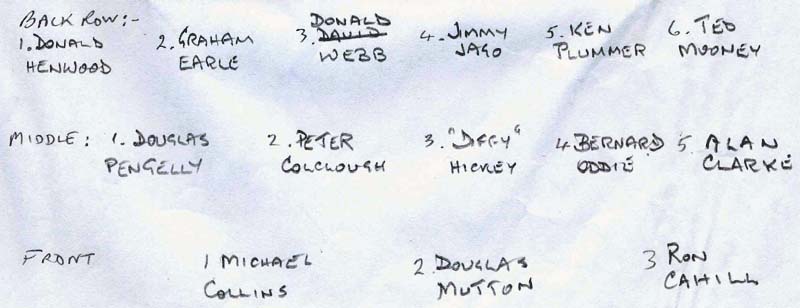 BACK ROW:-
1. DONALD HENWOOD
2. GRAHAM EARLE
3. DONALD DAVID WEBB
4. JIMMY JAGO
5. KEN PLUMMER
6. TED MOONEY
MIDDLE:
1. DOUGLAS PENGELLY
2. PETER COLCLOUGH
3. "DIFFY" HICKEY
4. BERNARD ODDIE
5. ALAN CLARKE
FRONT
1 MICHAEL COLLINS
2. DOUGLAS MUTTON
3 RON CAHILL